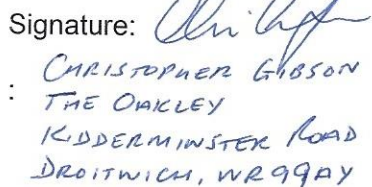 Signature:
: CHRISTOPHER GIBSON
THE OAKLEY
KIDDERMINSTER ROAD
DROITWICH, WR99AY